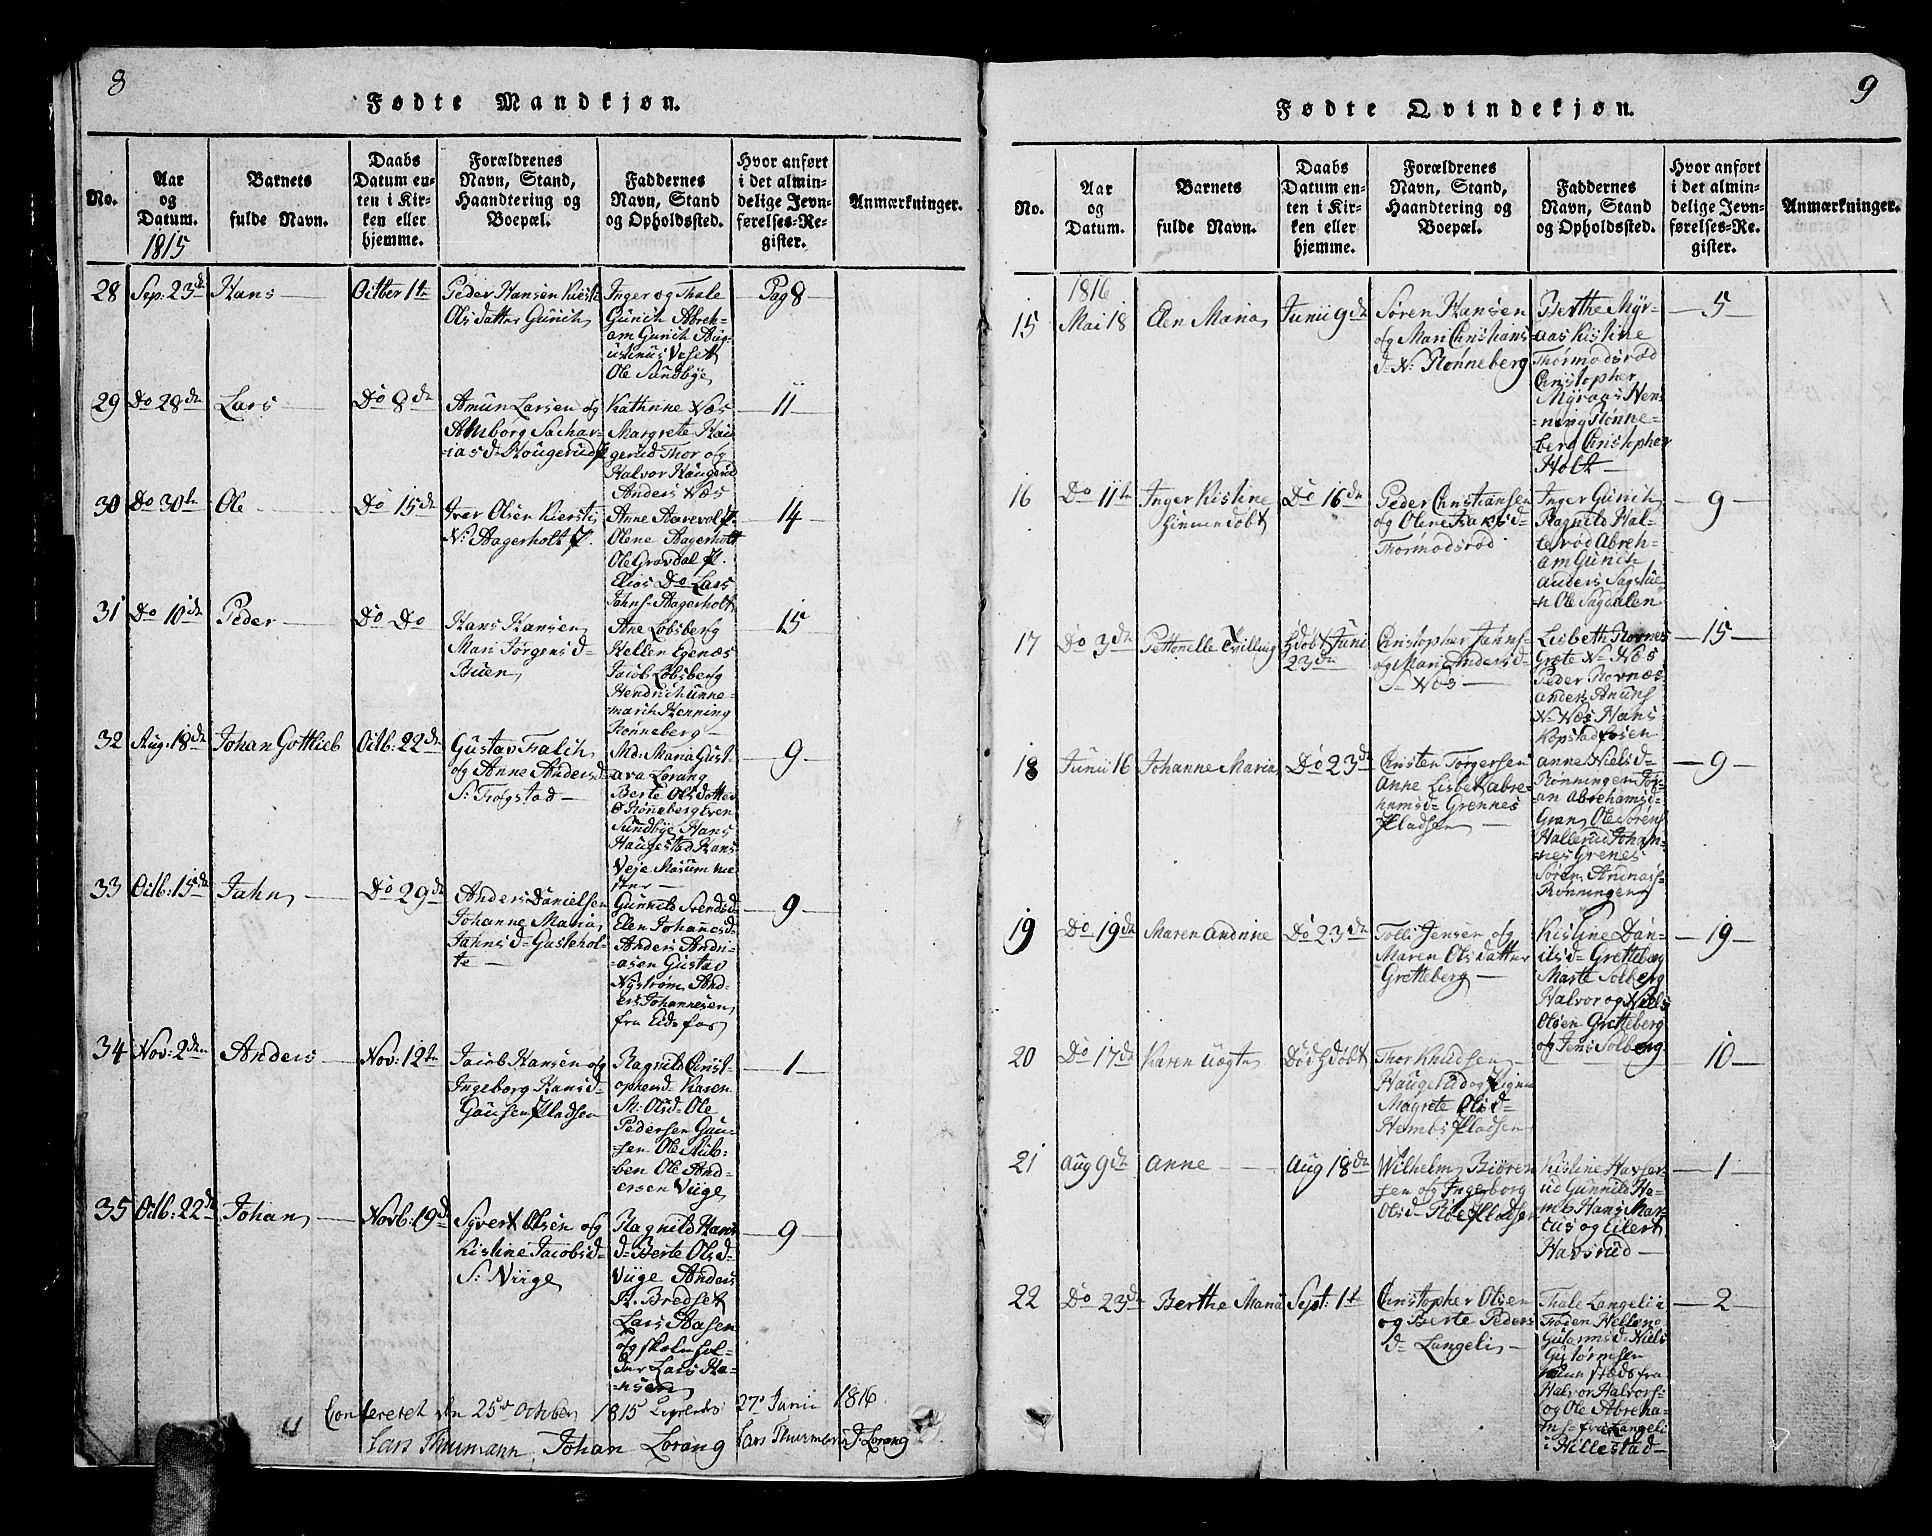 8
Fødte Mandkjøn.
No.
Aar
og
Datum.
1815
Barnets
fulde Navn.
Daabs
Datum en-
ten i Kir-
ken eller
hjemme.
Forældrenes
Navn, Stand,
Haandtering og
Boepæl.
Faddernes
Navn, Stand
og Opholdssted.
Hvor anført
i det almin-
delige Jevn-
førelses-Re-
gister.
Anmærkninger.
28 Sep: 23de Hans Octber 1te
Peder Hansen
Olsdatter Gunich
Inger og Thale
Gunich Abreh-
am Gunich Aug-
ustinus Veset
Ole Sundbye
Pag 8
29 Do 28de Lars Do 8de
Amun Larsen og
Amborg Sachar-
iasd= Hougerud
Kathrine Næs
Margrete Hau
gerud Thor og
Halvor Haugerud
Anders Næs
11
30 Do 30te Ole Do 15de
Iver Olsen Kiersti
N: Aagerholt P.
Anne
Olene Aagerholt
Ole Gravdal P.
Elias Do Lars
Jahns= Aagerholt
14
31 Do 10de Peder Do Do
Hans Hansen
Mari Jørgensd=
Buen
Ane Løbsberg
Hellen Egenæs
Jacob Løbsberg
Hendrich unne-
marck Henning
Rønneberg
15
32 Aug: 18de Johan Gottlieb Octb: 22de
Gustav Falch
og Anne Andersd=
S: Frøgstad
Md: Maria Gust-
ava Lorang
Berte Olsdatter
Rønneberg Even
Sundbye Hans
Haugestad Hans
Veje Masum me
ster
9
33 Octb: 15de Jahn Do 29de
Anders Danielsen
Johanne Maria
Jahnsd= Gustehol-
te
Gunnild Svendsd=
Elen Johanesd=
Anders Andri-
asen Gustav
Nystrøm And-
ers Johannesen
fra Eidsfos
9
34 Nov: 2den Anders Nov: 12te
Jacob Hansen og
Ingeborg Hansd=
Gausen Pladsen
Ragnild Christ-
ophersd= Karen
M: Olsd= Ole
Pedersen Gau-
sen Ole
ben Ole And-
ersen Viige
1
35 Octb: 22de Johan Novb: 19de
Syvert Olsen og
Kistine Jacobsd=
S: Viige
Ragnild Hans
d= Berte Olsd=
Viige Anders
Bredset
Lars Aasen
og skolehol-
der Lars Ha-
nsen
9
Confereret den 25de October 1815
Lars Thurmann Johan Lorang
27de Junii 1816
Lars Thurmann J Lorang
9
Fødte Qvindekjøn.
No.
Aar
og
Datum.
Barnets
fulde Navn.
Daabs
Datum en-
ten i Kir-
ken eller
hjemme.
Forældrenes
Navn, Stand,
Haandtering og
Boepæl.
Faddernes
Navn, Stand
og Opholdssted.
Hvor anført
i det almin-
delige Jevn-
førelses-Re-
gister.
Anmærkninger.
1816
15 Mai 18 Elen Maria Junii 9de
Søren Hansen
og Mari Christians
d= N: Rønneberg
Berthe Myr-
aas Kistine
Thormodsrød
Christopher
Myraas Hen-
ning Rønne-
berg Christopher
Holt
5
16 Do 11te Inger Kistine
hiemmedøbt
Do 16de
Peder Christiansen
og Olene Isaksd=
Thormodsrød
Inger Gunich
Ragnild Hal-
lerød Abreh-
am Gunich
Anders Sagstue
n Ole Sagdalen
9
17 Do 3de Pettonelle Tvilling Hdøbt Juni
23de
Christopher Jahns=
og Mari Andersd=
S= Næs
Lisbeth Rovnes
Grete N= Næs
Peder Rovnæs
anders Anuns=
N= Næs Hans
Kopstadfosen
15
18 Junii 16 Johanne Maria Do 23de
Christen Torgersen
Anne Lisbet Abre-
hamsd= Grennes
Pladsen
anne Nielsd=
Rønningen Jør-
an Abrehamsd=
Gran Ole Sørens
Hallerud Johan-
nes Grenes
Søren
Rønningen
9
19 Do 19de Maren Andrine Do 23de
Tolli Jensen og
Maren Olsdatter
Gretteberg
Kistine Dan-
ilsd= Gretteberg
Marte Solberg
Halvor og Niels
Olsen Gretteberg
og Jens Solberg
19
20 Do 17de Karen Uægte
Thor Knudsen
Haugerud og Signe
Magrete Olsd=
Hembs Pladsen
10
21 Aug 9de Anne Aug 18de
Wilhelm Biøren
sen og Ingerborg
Olsd= Pladsen
Kistine Havser-
ud Gunnild Ha-
Hans Mar-
cus og Eilert
Havsrud
1
22 Do 23de Berthe Maria Sept: 1te
Christopher Olsen
og Berte Peders
d= Langeli
Thale Langeli i
Foden Hellene
Gutormsd= Niels
Gutormsen
Halvor Halvors=
og Ole Abreha-
ms= fra Langeli
i Hillestad
2